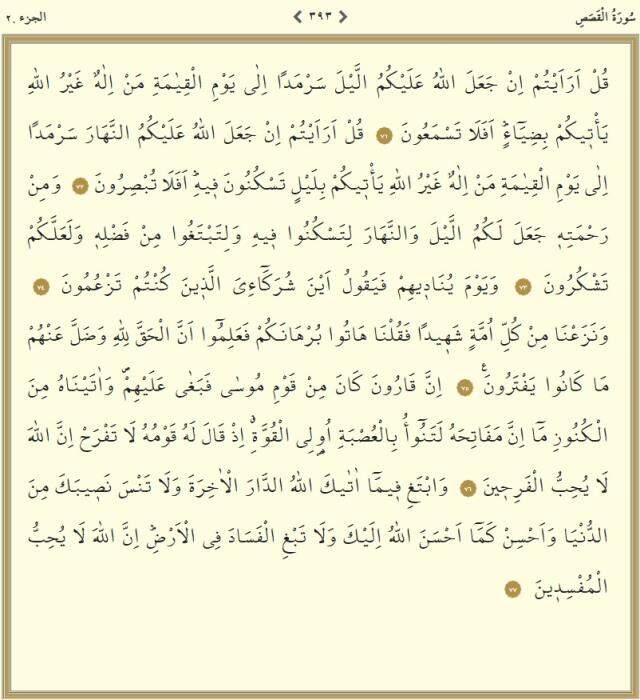 سُورَةُ الْقَصَصِ ٣٩٣ الجزء ٢٠
قُلْ اَرَاَيْتُمْ اِنْ جَعَلَ اللّٰهُ عَلَيْكُمُ الَّيْلَ سَرْمَدًا اِلٰى يَوْمِ الْقِيٰمَةِ مَنْ اِلٰهٌ غَيْرُ اللّٰهِ
يَأْت۪يكُمْ بِضِيَٓاءٍۜ اَفَلَا تَسْمَعُونَ ٧١ قُلْ اَرَاَيْتُمْ اِنْ جَعَلَ اللّٰهُ عَلَيْكُمُ النَّهَارَ سَرْمَدًا
اِلٰى يَوْمِ الْقِيٰمَةِ مَنْ اِلٰهٌ غَيْرُ اللّٰهِ يَأْت۪يكُمْ بِلَيْلٍ تَسْكُنُونَ ف۪يهِۜ اَفَلَا تُبْصِرُونَ ٧٢ وَمِنْ
رَحْمَتِه۪ جَعَلَ لَكُمُ الَّيْلَ وَالنَّهَارَ لِتَسْكُنُوا ف۪يهِ وَلِتَبْتَغُوا مِنْ فَضْلِه۪ وَلَعَلَّكُمْ
تَشْكُرُونَ ٧٣ وَيَوْمَ يُنَاد۪يهِمْ فَيَقُولُ اَيْنَ شُرَكَٓاءِيَ الَّذ۪ينَ كُنْتُمْ تَزْعُمُونَ ٧٤
وَنَزَعْنَا مِنْ كُلِّ اُمَّةٍ شَه۪يدًا فَقُلْنَا هَاتُوا بُرْهَانَكُمْ فَعَلِمُٓوا اَنَّ الْحَقَّ لِلّٰهِ وَضَلَّ عَنْهُمْ
مَا كَانُوا يَفْتَرُونَ۟ ٧٥ اِنَّ قَارُونَ كَانَ مِنْ قَوْمِ مُوسٰى فَبَغٰى عَلَيْهِمْۖ وَاٰتَيْنَاهُ مِنَ
الْكُنُوزِ مَٓا اِنَّ مَفَاتِحَهُ لَتَنُٓوأُ بِالْعُصْبَةِ اُو۬لِي الْقُوَّةِۗ اِذْ قَالَ لَهُ قَوْمُهُ لَا تَفْرَحْ اِنَّ اللّٰهَ
لَا يُحِبُّ الْفَرِح۪ينَ ٧٦ وَابْتَغِ ف۪يمَٓا اٰتٰيكَ اللّٰهُ الدَّارَ الْاٰخِرَةَ وَلَا تَنْسَ نَص۪يبَكَ مِنَ
الدُّنْيَا وَاَحْسِنْ كَمَٓا اَحْسَنَ اللّٰهُ اِلَيْكَ وَلَا تَبْغِ الْفَسَادَ فِي الْاَرْضِۜ اِنَّ اللّٰهَ لَا يُحِبُّ
الْمُفْسِد۪ينَ ٧٧